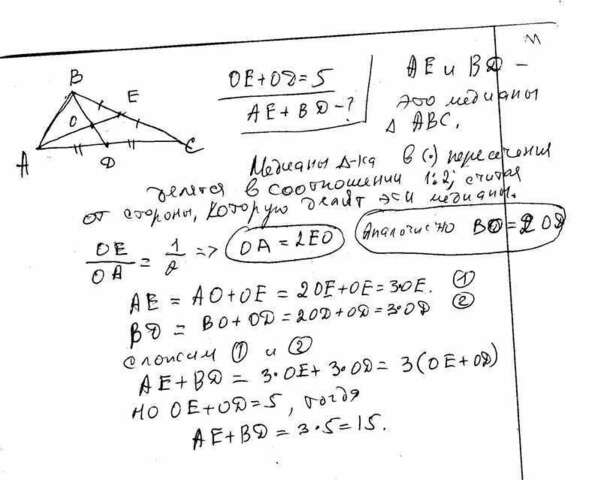 B
E
O
A
D
C
OE+OD=5
AE+BD-?
AE и BD -
это медианы
Δ ABC.
Медианы Δ-ка в (•) пересечения
делятся в соотношении 1:2, считая
от стороны, которую делят эти медианы.
OE/OA = 1/2 => OA = 2EO
Аналогично BO=2OD
AE = AO+OE = 2OE+OE=3•OE. ①
BD = BO+OD=2OD+OD=3•OD ②
сложим ① и ②
AE+BD = 3•OE+3•OD= 3(OE+OD)
но OE+OD=5, тогда
AE+BD=3•5=15.